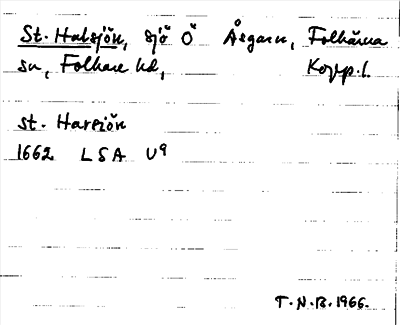 St. Halsjön, sjö Ö Åsgarn, Folkärna
sn, Folkare hd, Kopp. l.
st. Harsiön
1662 LSA U9
T.N.B. 1966.